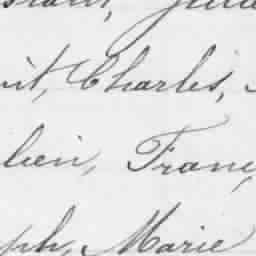 it, Charles,
lien, Franç
ph, Marie